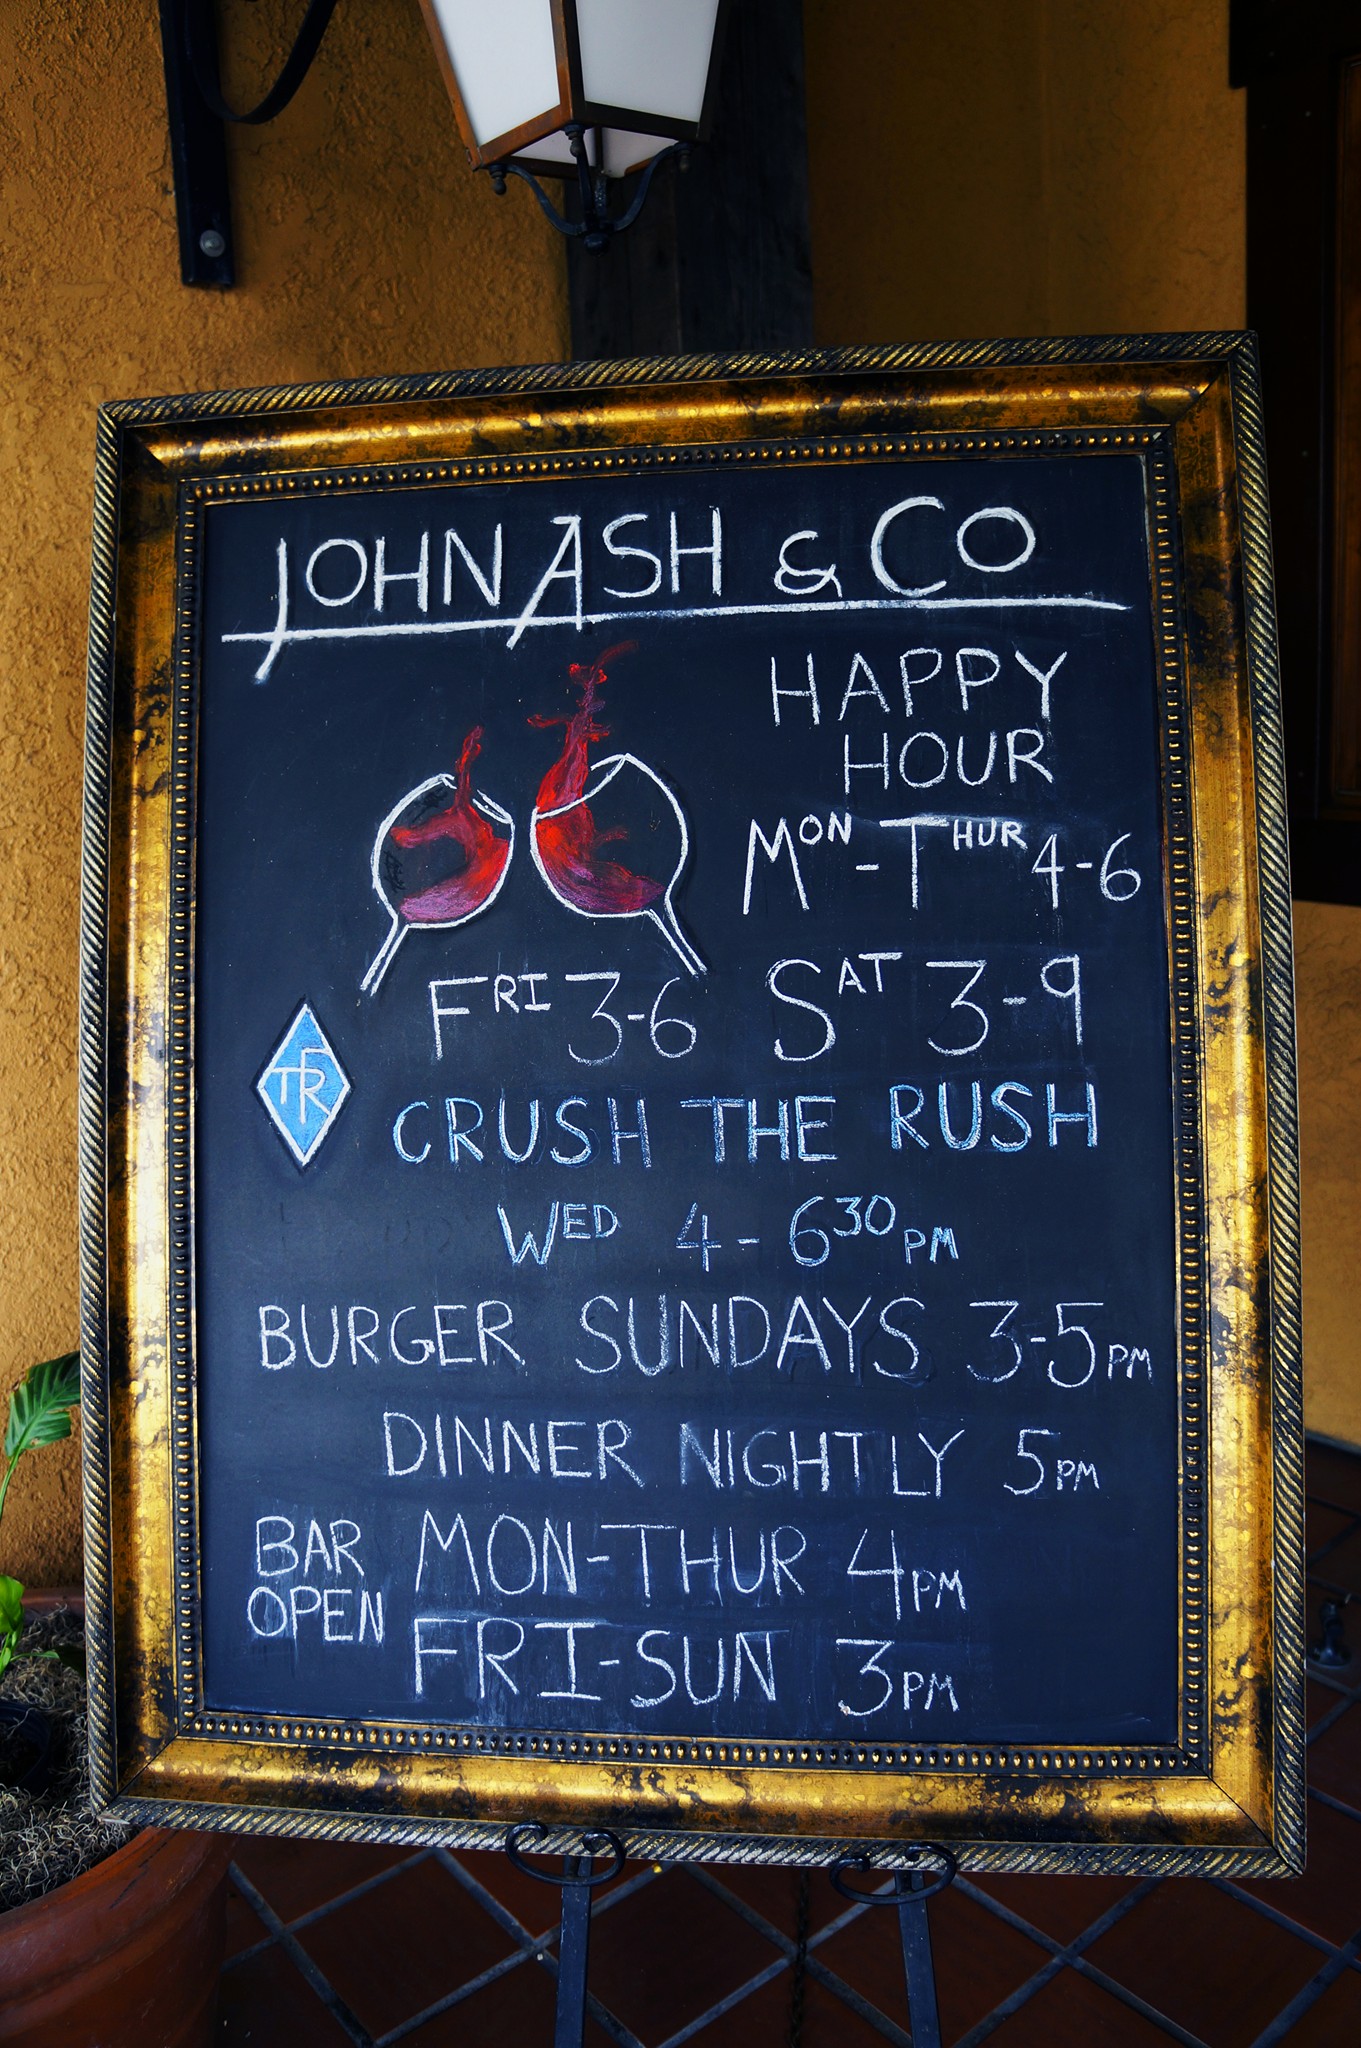 JOHN ASH & CO
HAPPY
HOUR
MON-THUR 4-6
FRI 3-6 SAT 3-9
TFR
CRUSH THE RUSH
WED 4-630PM
BURGER SUNDAYS 3-5PM
DINNER NIGHTLY 5PM
BAR OPEN
MON-THUR 4PM
FRI-SUN 3PM